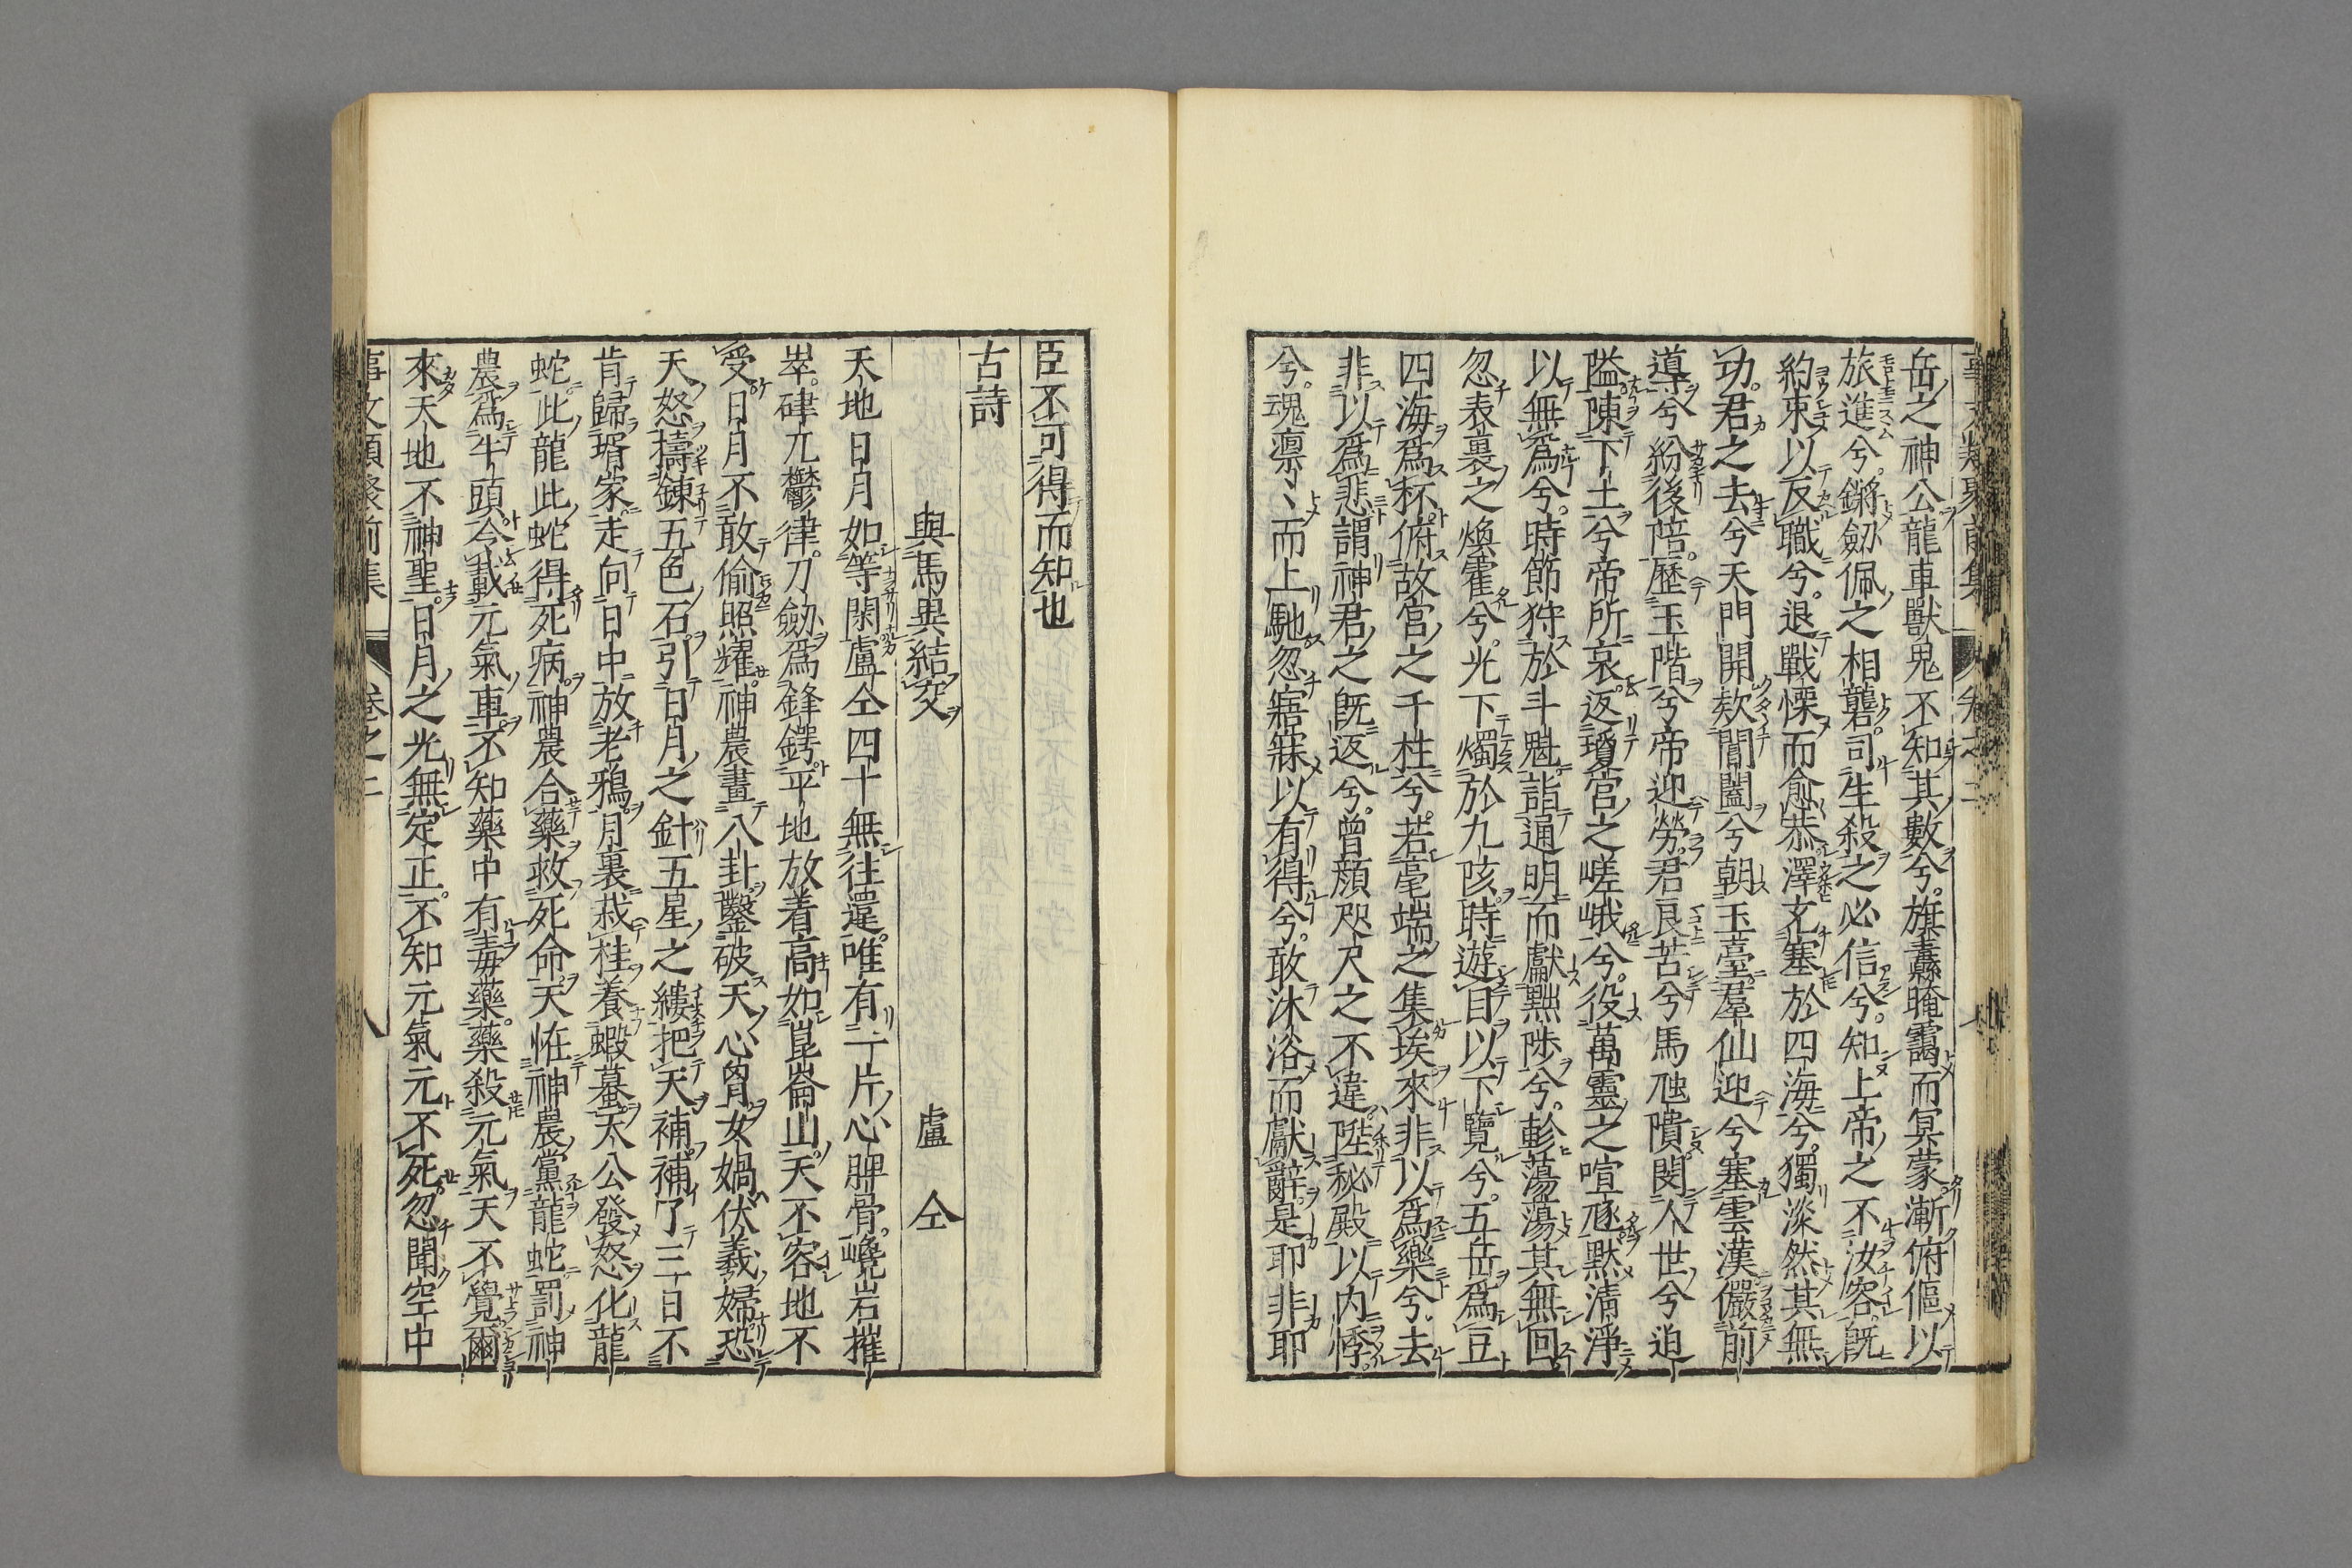 岳之神公龍車獸鬼不知其數兮旗纛晻靄而冥蒙漸俯傴以
旅進兮鏘劒佩之相礱司生殺之必信兮知上帝之不汝容旣
約束以反職兮退戰慄而愈恭澤充塞於四海兮獨漠然其無
功君之去兮天門開欵閶闔兮朝玉臺羣仙迎兮塞雲漢儼前
導兮紛後陪歷玉階兮帝迎勞君良苦兮馬虺隤閔人世兮迫
隘陳下土兮帝所哀返瓊宮之嵯峨兮役萬靈之喧豗默清淨
以無爲兮時節狩於斗魁詣通明而獻黜陟兮軫蕩蕩其無回
忽表裏之煥霍兮光下燭於九陔時遊目以下覽兮五岳爲豆
四海爲杯俯故宮之千柱兮若毫端之集埃來非以爲樂兮去
非以爲悲謂神君之旣返兮曾顏咫尺之不違陞秘殿以內悸
兮魂凛〻而上馳忽寤寐以有得兮敢沐浴而獻辭是耶非耶
臣不可得而知也
古詩
與馬異結交　盧仝
天地日月如等閑盧仝四十無往還唯有一片心脾骨巉岩摧
崒硉兀鬱律刀劒爲鋒鍔平地放着高如崑崙山天不容地不
受日月不敢偷照耀神農畫八卦鑿破天心胷女媧伏羲婦恐
天怒擣鍊五色石引日月之針五星之縷把天補補了三日不
肯歸壻家走向日中放老鴉月裏栽桂養蝦蟇天公發怒化龍
蛇此龍此蛇得死病神農合藥救死命天恠神農黨龍蛇罰神
農爲牛頭令載元氣車不知藥中有毒藥藥殺元氣天不覺爾
來天地不神聖日月之光無定正不知元氣元不死忽聞空中
事文類聚前集　卷之二　八